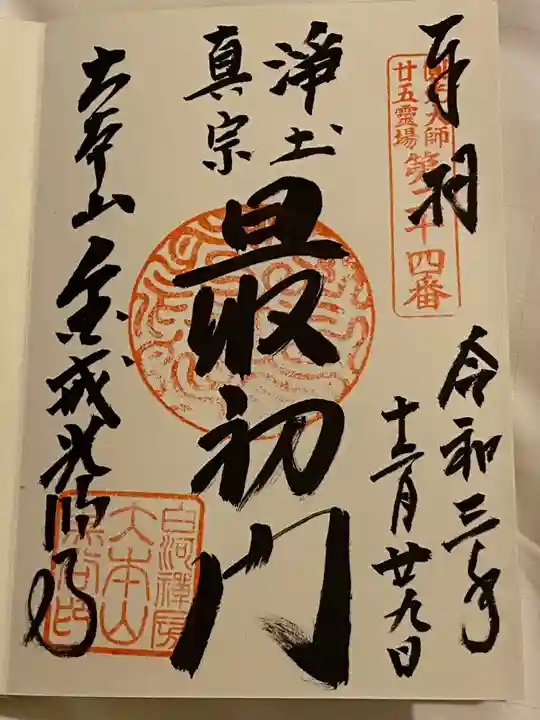 奉拝
圓光大師
廿五霊場
第二十四番
令和三年
十二月廿九日
浄土
真宗
最初門
大本山金戒光明寺
白河禅房
大本山